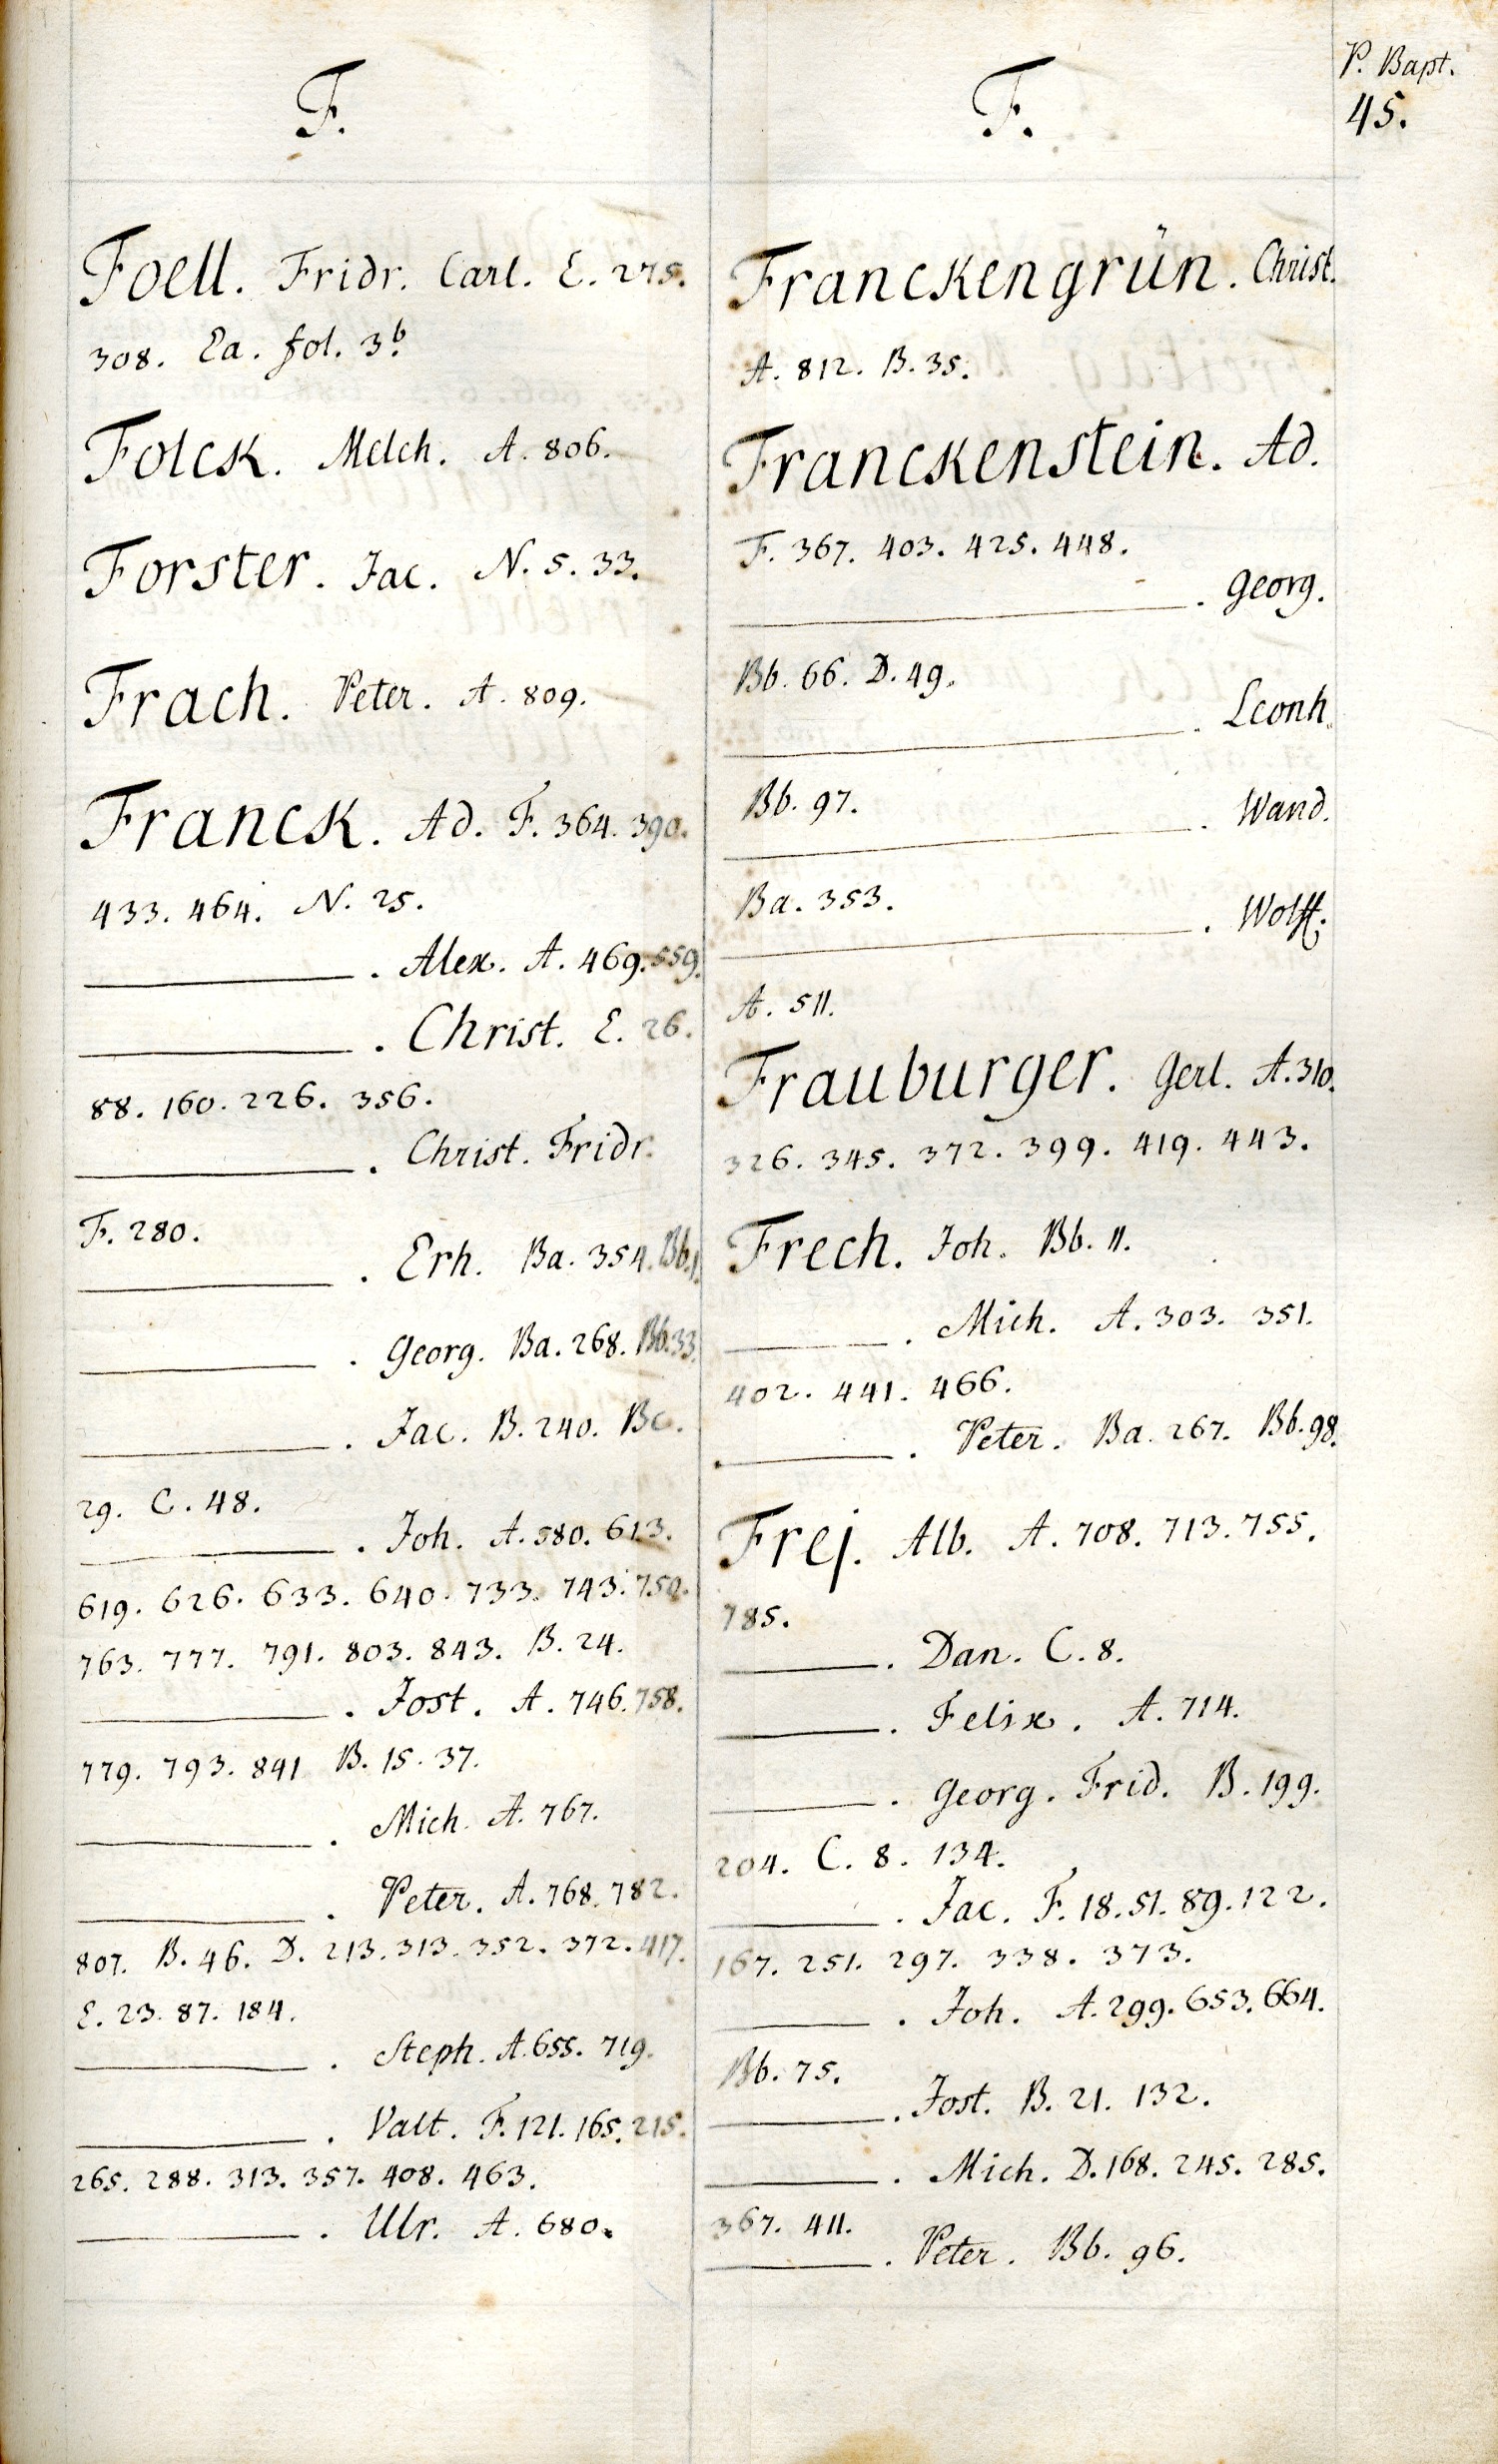 P. Bapt.
45.
F.
Foell. Fridr. Carl. E. 275.
308. Ea. fol. 3b.
Folck. Melch. A. 806.
Forster. Jac. N. 5. 33.
Frach. Peter. A. 809.
Franck. Ad. F. 364. 390.
433. 464. N. 25.
———. Alex. A. 469. 559.
———. Christ. E. 26.
88. 160. 226. 356.
———. Christ. Fridr.
F. 280.
———. Erh. Ba. 354. Bb. 1.
———. Georg. Ba. 268. Bb. 33.
———. Jac. B. 240. Bc.
29. C. 48.
———. Joh. A. 580. 613.
619. 626. 633. 640. 733. 743. 750.
763. 777. 791. 803. 843. B. 24.
———. Jost. A. 746. 758.
779. 793. 841 B. 15. 37.
———. Mich. A. 767.
———. Peter. A. 768. 782.
807. B. 46. D. 213. 313. 352. 372. 417.
E. 23. 87. 184.
———. Steph. A. 655. 719.
———. Valt. F. 121. 165. 215.
265. 288. 313. 357. 408. 463.
———. Ulr. A. 680.
F.
Franckengrün. Christ.
A. 812. B. 35.
Franckenstein. Ad.
F. 367. 403. 425. 448.
———. Georg.
Bb. 66. D. 49.
———. Leonh.
Bb. 97.
———. Wand.
Ba. 353.
———. Wolff.
A. 511.
Frauburger. Gerl. A. 310.
326. 345. 372. 399. 419. 443.
Frech. Joh. Bb. 11.
———. Mich. A. 303. 351.
402. 441. 466.
———. Peter. Ba. 267. Bb. 98.
Frej. Alb. A. 708. 713. 755.
785.
———. Dan. C. 8.
———. Felix. A. 714.
———. Georg. Frid. B. 199.
204. C. 8. 134.
———. Jac. F. 18. 51. 89. 122.
167. 251. 297. 338. 373.
———. Joh. A. 299. 653. 664.
Bb. 75.
———. Jost. B. 21. 132.
———. Mich. D. 168. 245. 285.
367. 411.
———. Peter. Bb. 96.